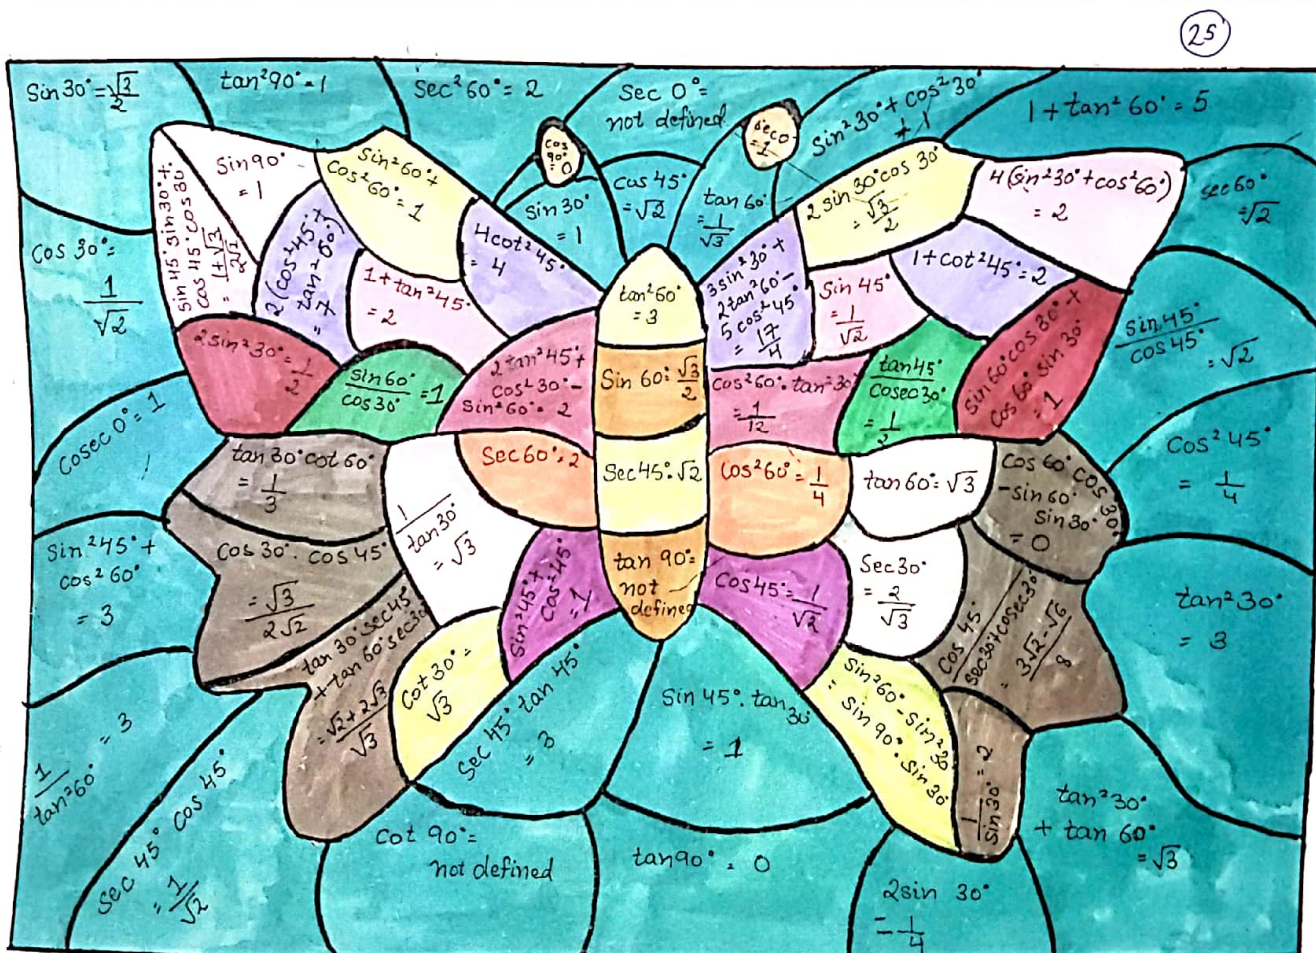 25
Sin 30° = √3/2
tan²90° = 1
Sec²60° = 2
sec 0° =
not defined
Sin²30° + cos²30°
≠ 1
1 + tan²60° = 5
cos
90°
= 0
sec0
= 1
Sin 90°
= 1
Sin²60° +
Cos²60° = 1
sin 30°
= 1
cas 45°
= √2
tan 60°
= 1/√3
2 sin 30° cos 30°
= √3/2
4(sin²30° + cos²60°)
= 2
sec 60°
= √2
sin 45° sin 30° +
cos 45° cos 30°
= 1+√3/2√2
2(cos²45° +
tan²60°)
= 7
4cot²45°
= 4
1 + tan²45°
= 2
tan²60°
= 3
3sin²30° +
2tan²60° -
5cos²45°
= 17/4
Sin 45°
= 1/√2
1 + cot²45° = 2
Cos 30° =
1/√2
2 sin²30° = 1/2
sin 60°/cos 30° = 1
2 tan²45° +
cos²30° -
Sin²60° = 2
Sin 60° = √3/2
cos²60° · tan²30°
= 1/12
tan 45°/cosec 30°
= 1/2
sin 60° cos 30° +
cos 60° sin 30°
= 1
sin 45°/cos 45° = √2
Cosec 0° = 1
tan 30° cot 60°
= 1/3
1/tan 30°
= √3
Sec 60° = 2
Sec 45° = √2
cos²60° = 1/4
tan 60° = √3
Cos 60° cos 30°
- sin 60°
Sin 30°
= 0
Cos²45°
= 1/4
Sin²45° +
cos²60°
= 3
Cos 30° . cos 45°
= √3/2√2
Sin²45° +
cos²45°
= 1
tan 90° =
not
defined
Cos 45° = 1/√2
Sec 30°
= 2/√3
Cos 45°/sec 30° + cosec 30°
= 3√2-√6/8
tan²30°
= 3
tan 30° sec 45°
+ tan 60° sec 30°
= √2+2√3/√3
Cot 30° =
√3
Sec 45° tan 45°
= 3
Sin 45° . tan 30°
= 1
Sin²60° - Sin²30
= Sin 90° · Sin 30°
1/Sin 30° = 2
1/tan²60° = 3
Sec 45° cos 45°
= 1/√2
cot 90° =
not defined
tan 90° = 0
2sin 30°
= -1/4
tan²30°
+ tan 60°
= √3